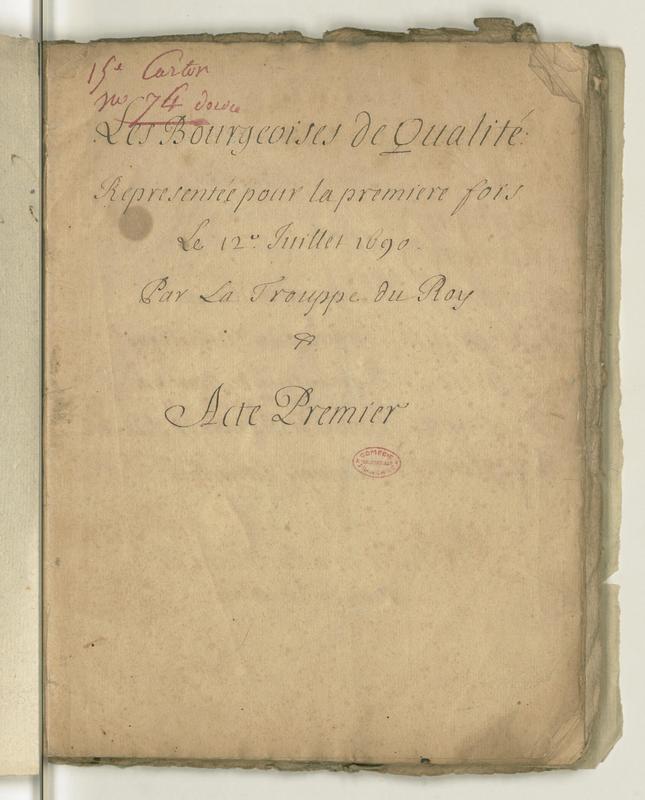 15e Carton
no 74
Les Bourgeoises de Qualité.
Representée pour la premiere fois
Le 12e Juillet 1690.
Par La Trouppe du Roy
Acte Premier
COMEDIE